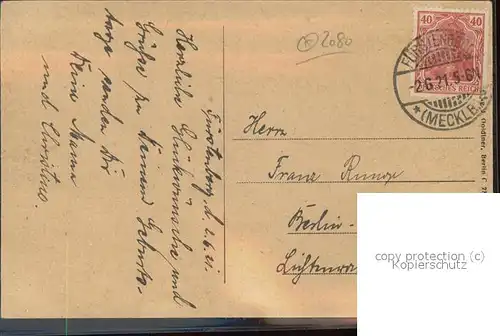 2080
Fürstenberg, d. 2.6.21.
Herzliche Glückwünsche und
Grüße zu Deinem Geburts-
tage senden Dir
Deine Mama
und Christens.
40 40
DEUTSCHES REICH
FÜRSTENBERG
-2.6.21. 5-6
*(MECKLB.)
Herrn
Franz Runge
Berlin-
Lichtenra
copy protection (c)
Kopierschutz
Goldiner, Berlin C